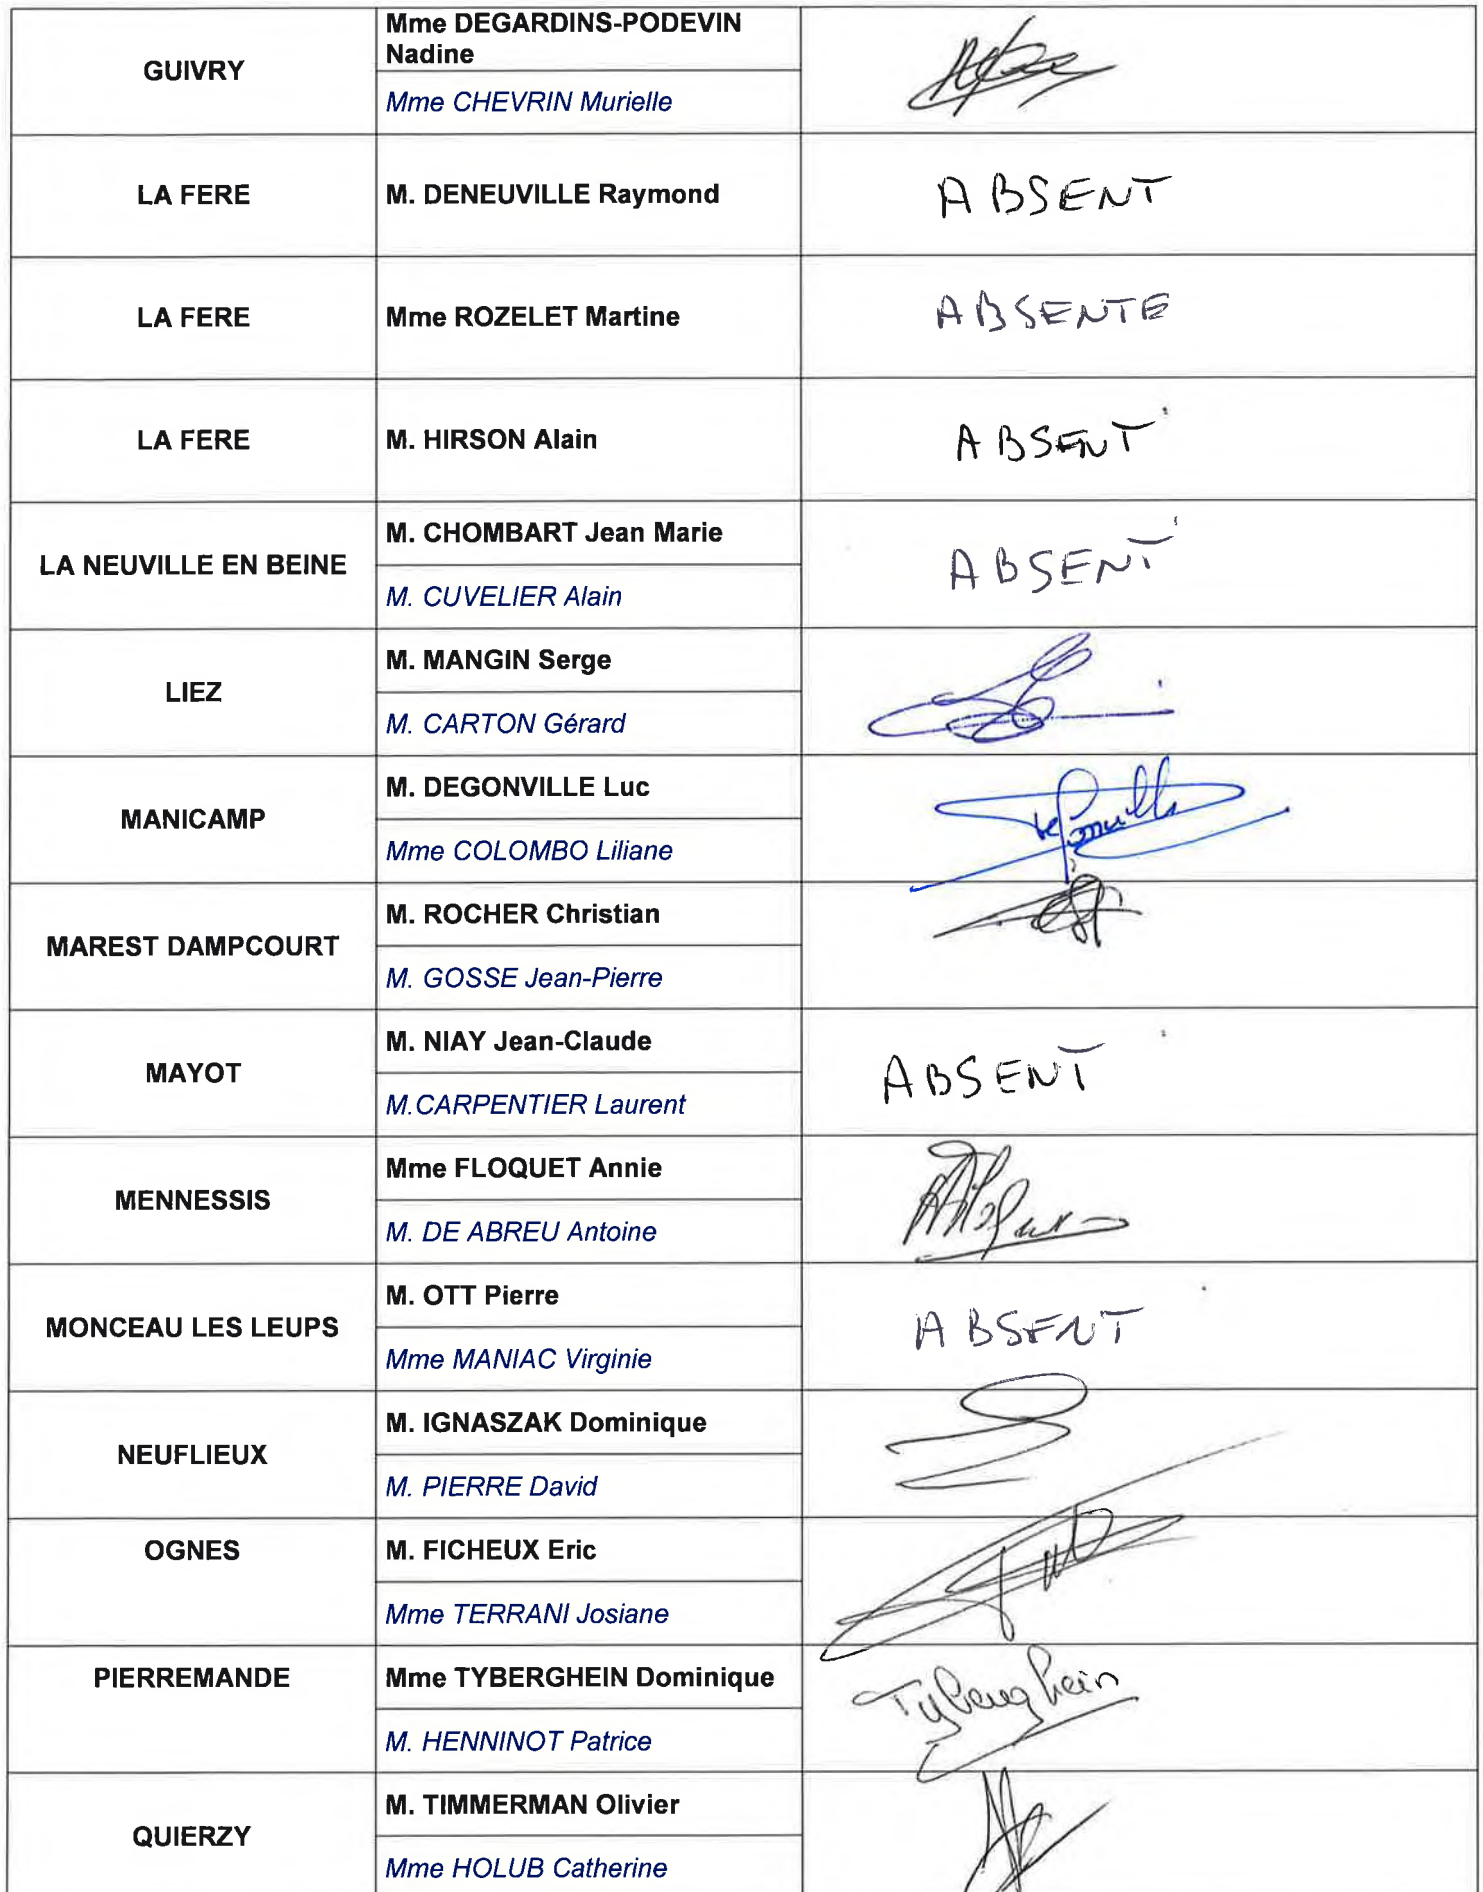 GUIVRY
Mme DEGARDINS-PODEVIN
Nadine
Mme CHEVRIN Murielle
LA FERE
M. DENEUVILLE Raymond
ABSENT
LA FERE
Mme ROZELET Martine
ABSENTE
LA FERE
M. HIRSON Alain
ABSENT
LA NEUVILLE EN BEINE
M. CHOMBART Jean Marie
M. CUVELIER Alain
ABSENT
LIEZ
M. MANGIN Serge
M. CARTON Gérard
MANICAMP
M. DEGONVILLE Luc
Mme COLOMBO Liliane
MAREST DAMPCOURT
M. ROCHER Christian
M. GOSSE Jean-Pierre
MAYOT
M. NIAY Jean-Claude
M.CARPENTIER Laurent
ABSENT
MENNESSIS
Mme FLOQUET Annie
M. DE ABREU Antoine
MONCEAU LES LEUPS
M. OTT Pierre
Mme MANIAC Virginie
ABSENT
NEUFLIEUX
M. IGNASZAK Dominique
M. PIERRE David
OGNES
M. FICHEUX Eric
Mme TERRANI Josiane
PIERREMANDE
Mme TYBERGHEIN Dominique
M. HENNINOT Patrice
Tyberghein
QUIERZY
M. TIMMERMAN Olivier
Mme HOLUB Catherine